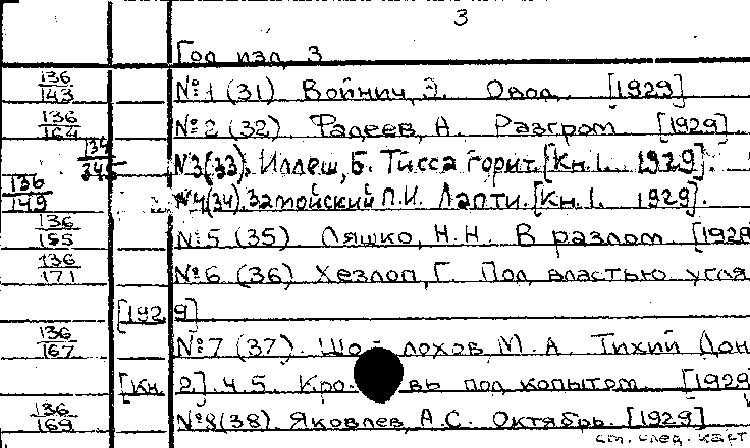 3
Год изд. 3
136/143 №1 (31) Войнич, Э. Овод. [1929]
136/164 №2 (32). Фадеев, А. Разгром [1929]
134/245 №3(33). Иллеш, Б. Тисса горит. [Кн.1. 1929].
136/149 №4(34). Замойский П.И. Лапти. [Кн.1. 1929].
136/155 №5 (35) Ляшко, Н.Н. В разлом [1929
136/171 №6 (36) Хезлоп, Г. Под властью угля
[1929]
136/167 №7 (37). Шолохов М.А. Тихий Дон
[Кн. 2]. ч.5. Кровь под копытом. [1929]
136/169 №8(38). Яковлев, А.С. Октябрь. [1929]
см. след. карт